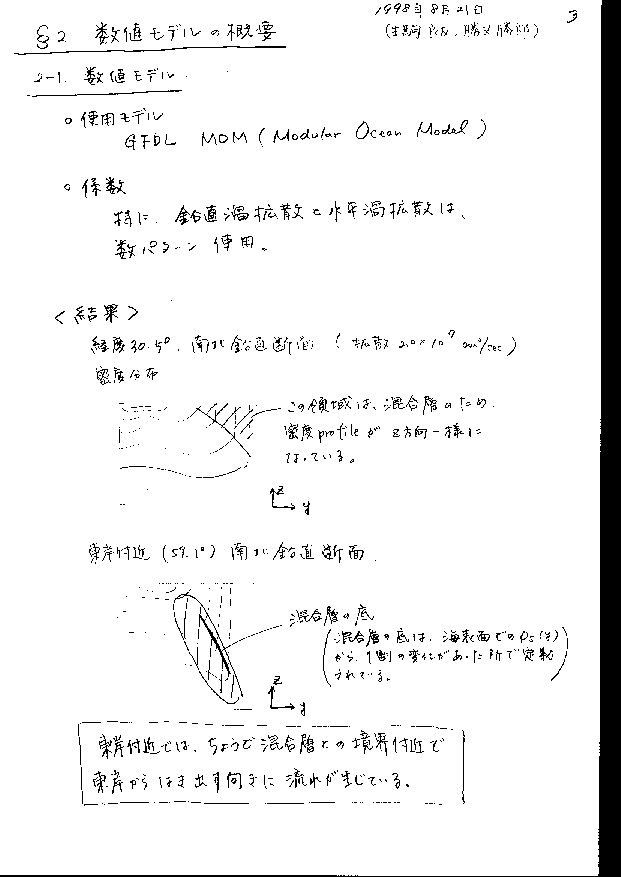 1998年8月21日
3
§2 数値モデルの概要
2-1. 数値モデル
○ 使用モデル
GFDL MOM (Modular Ocean Model)
○ 係数
特に、鉛直渦拡散と水平渦拡散は、
数パターン使用。
<結果>
経度30.5°、南北鉛直断面 (拡散 2.0×10⁷ cm²/sec)
密度分布
この領域は、混合層のため
密度profileがz方向一様に
なっている。
z
y
東岸付近 (59.1°) 南北鉛直断面
混合層の底
(混合層の底は、海表面での
から、1割の変化があった所で定義
されている。)
z
y
東岸付近では、ちょうど混合層との境界付近で
東岸からはき出す向きに流れが生じている。